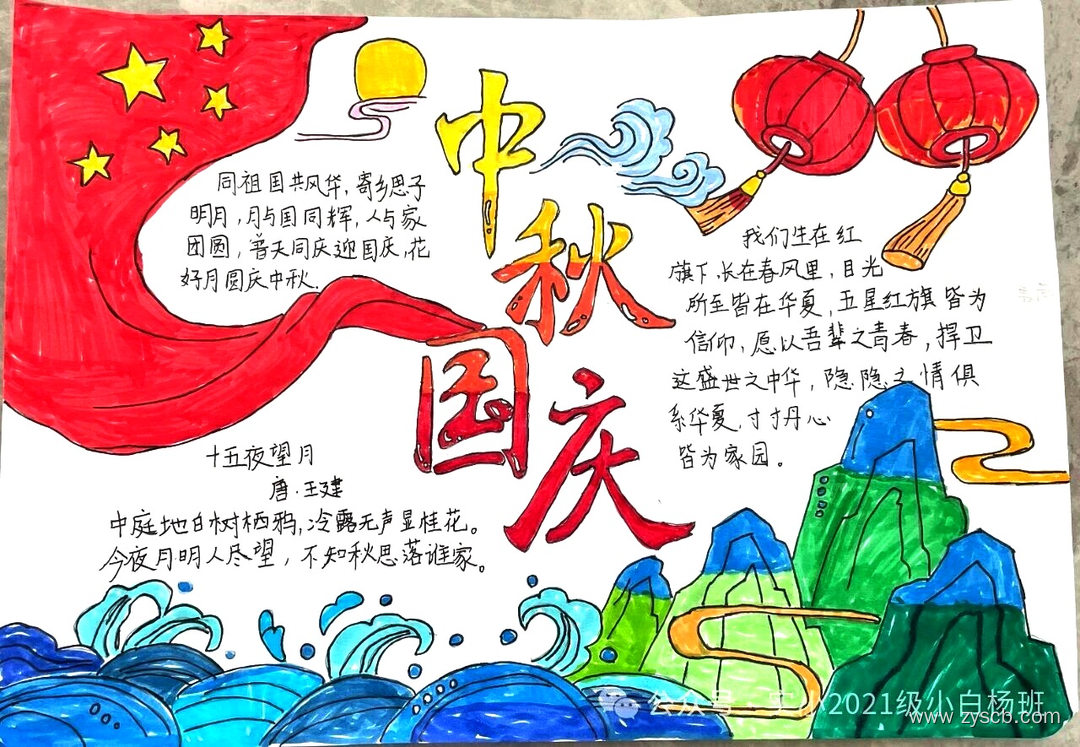 中秋
国庆
同祖国共风华,寄乡思予
明月,月与国同辉,人与家
团圆,普天同庆迎国庆,花
好月圆庆中秋.
我们生在红
旗下,长在春风里,目光
所至皆在华夏,五星红旗皆为
信仰,愿以吾辈之青春,捍卫
这盛世之中华,隐隐之情俱
系华夏,寸寸丹心
皆为家园。
十五夜望月
唐.王建
中庭地白树栖鸦,冷露无声显桂花。
今夜月明人尽望,不知秋思落谁家。
公众号·实小2021级小白杨班
www.zyscb.com